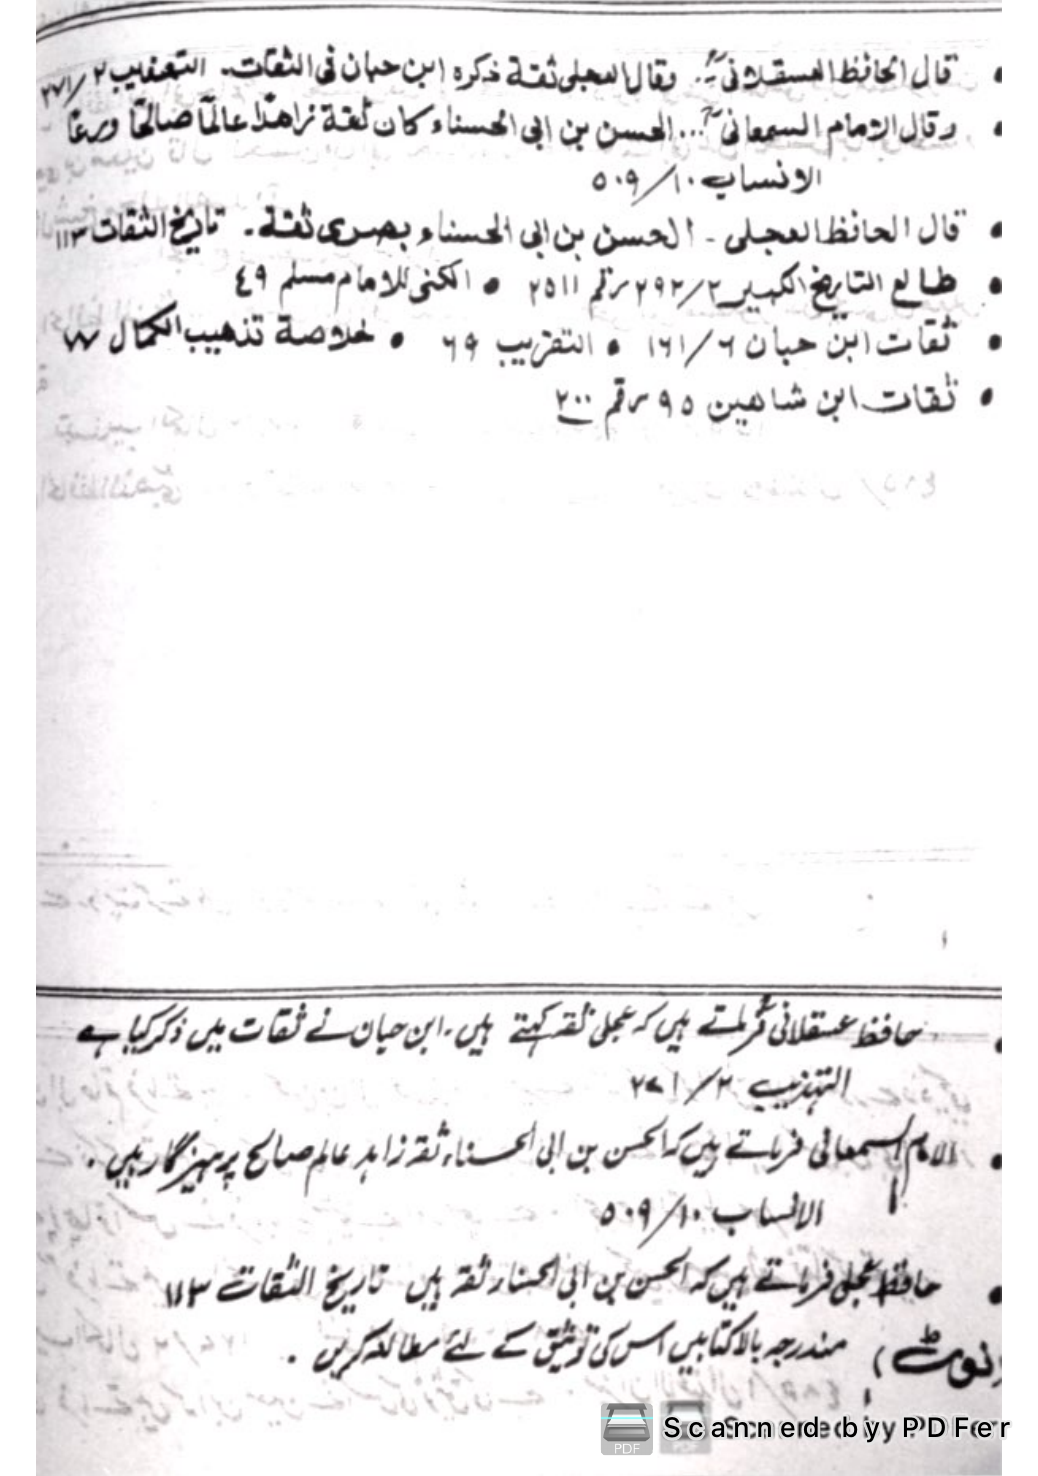 • قال الحافظ العسقلانیؒ. وقال العجلی ثقة ذکره ابن حبان فی الثقات۔ التهذیب ۲/۲۷۱
• وقال الامام السمعانیؒ... الحسن بن ابی الحسناء کان ثقة زاهدًا عالمًا صالحًا ورعًا
الانساب ۱۰/۵۰۹
• قال الحافظ العجلی ۔ الحسن بن ابی الحسناء بصری ثقة ۔ تاریخ الثقات ۱۱۳
• طالع التاریخ الکبیر ۲/۲۹۲ رقم ۲۵۱۱ • الکنی للامام مسلم ٤٩
• ثقات ابن حبان ۶/۱۶۱ • التقریب ۶۹ • خلاصة تذهیب الکمال ۷۷
• ثقات ابن شاهین ۹۵ رقم ۲۰۰
• حافظ عسقلانیؒ فرماتے ہیں کہ عجلی ثقہ کہتے ہیں ۔ ابن حبان نے ثقات میں ذکر کیا ہے
التہذیب ۲/۲۷۱
• الامام السمعانی فرماتے ہیں کہ الحسن بن ابی الحسناء ثقہ زاہد عالم صالح پرہیزگار ہیں ۔
الانساب ۱۰/۵۰۹
• حافظ عجلی فرماتے ہیں کہ الحسن بن ابی الحسناء ثقہ ہیں تاریخ الثقات ۱۱۳
(نوٹ) مندرجہ بالا کتابیں اس کی توثیق کے لئے مطالعہ کریں ۔
Scanned by PDFer